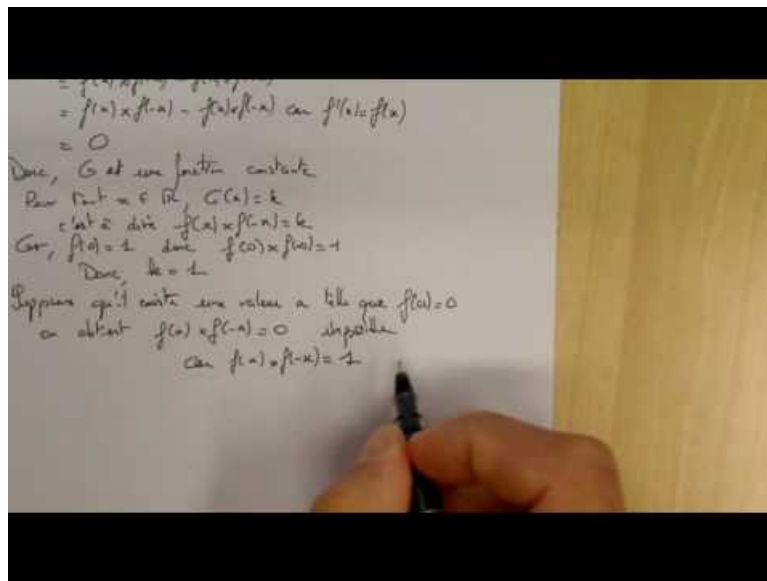 = f(x) × f(-x) - f(x) × f(-x) car f'(x) = f(x)
= 0
Donc, G est une fonction constante
Pour tout x ∈ ℝ, G(x) = k
c'est à dire f(x) × f(-x) = k
Or, f(0) = 1 donc f(0) × f(-0) = 1
Donc, k = 1
Supposons qu'il existe une valeur a telle que f(a) = 0
on obtient f(a) × f(-a) = 0 impossible
car f(x) × f(-x) = 1